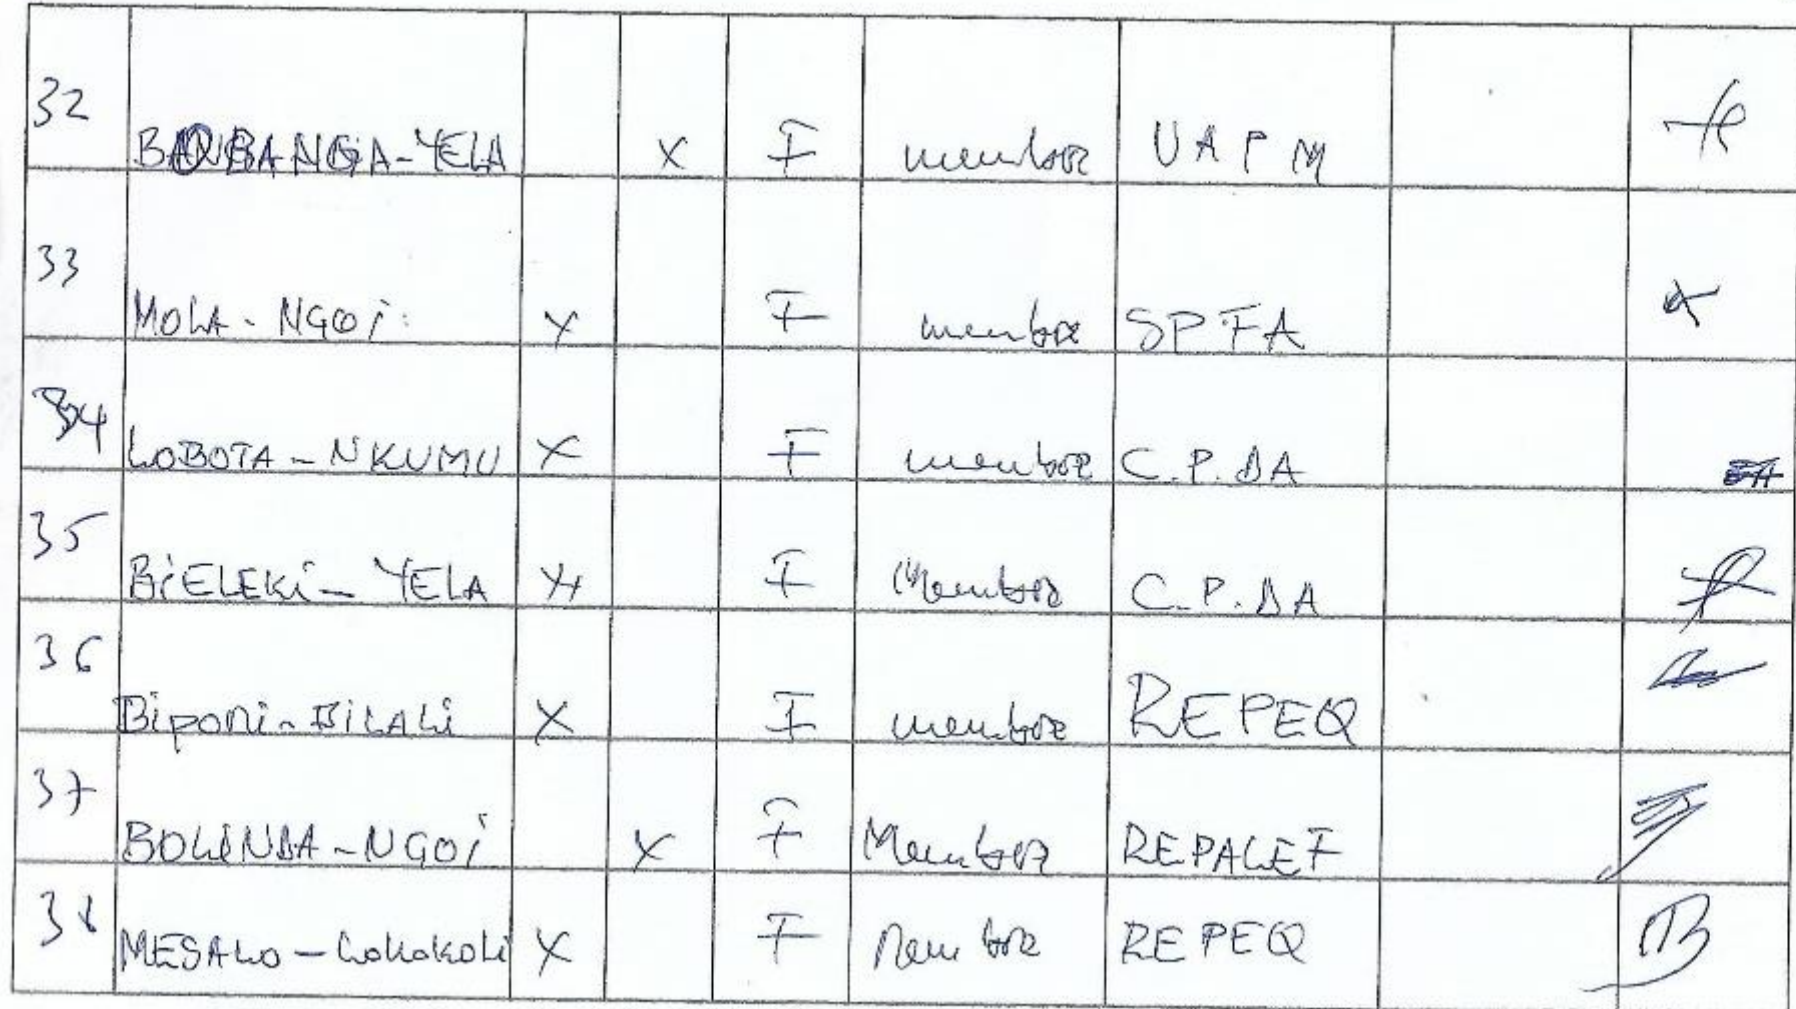 32 BAOBANGA-YELA X F membre UAPM
33 MOLA-NGOi X F membre SPFA
34 LOBOTA-NKUMU X F membre C.P.DA
35 BiELEKi-YELA X F Membre C.P.DA
36 BiPONi-BiLALi X F membre REPEQ
37 BOLINDA-NGOi X F Membre REPALEF
38 MESALO-LOKOKOLi X F Membre REPEQ